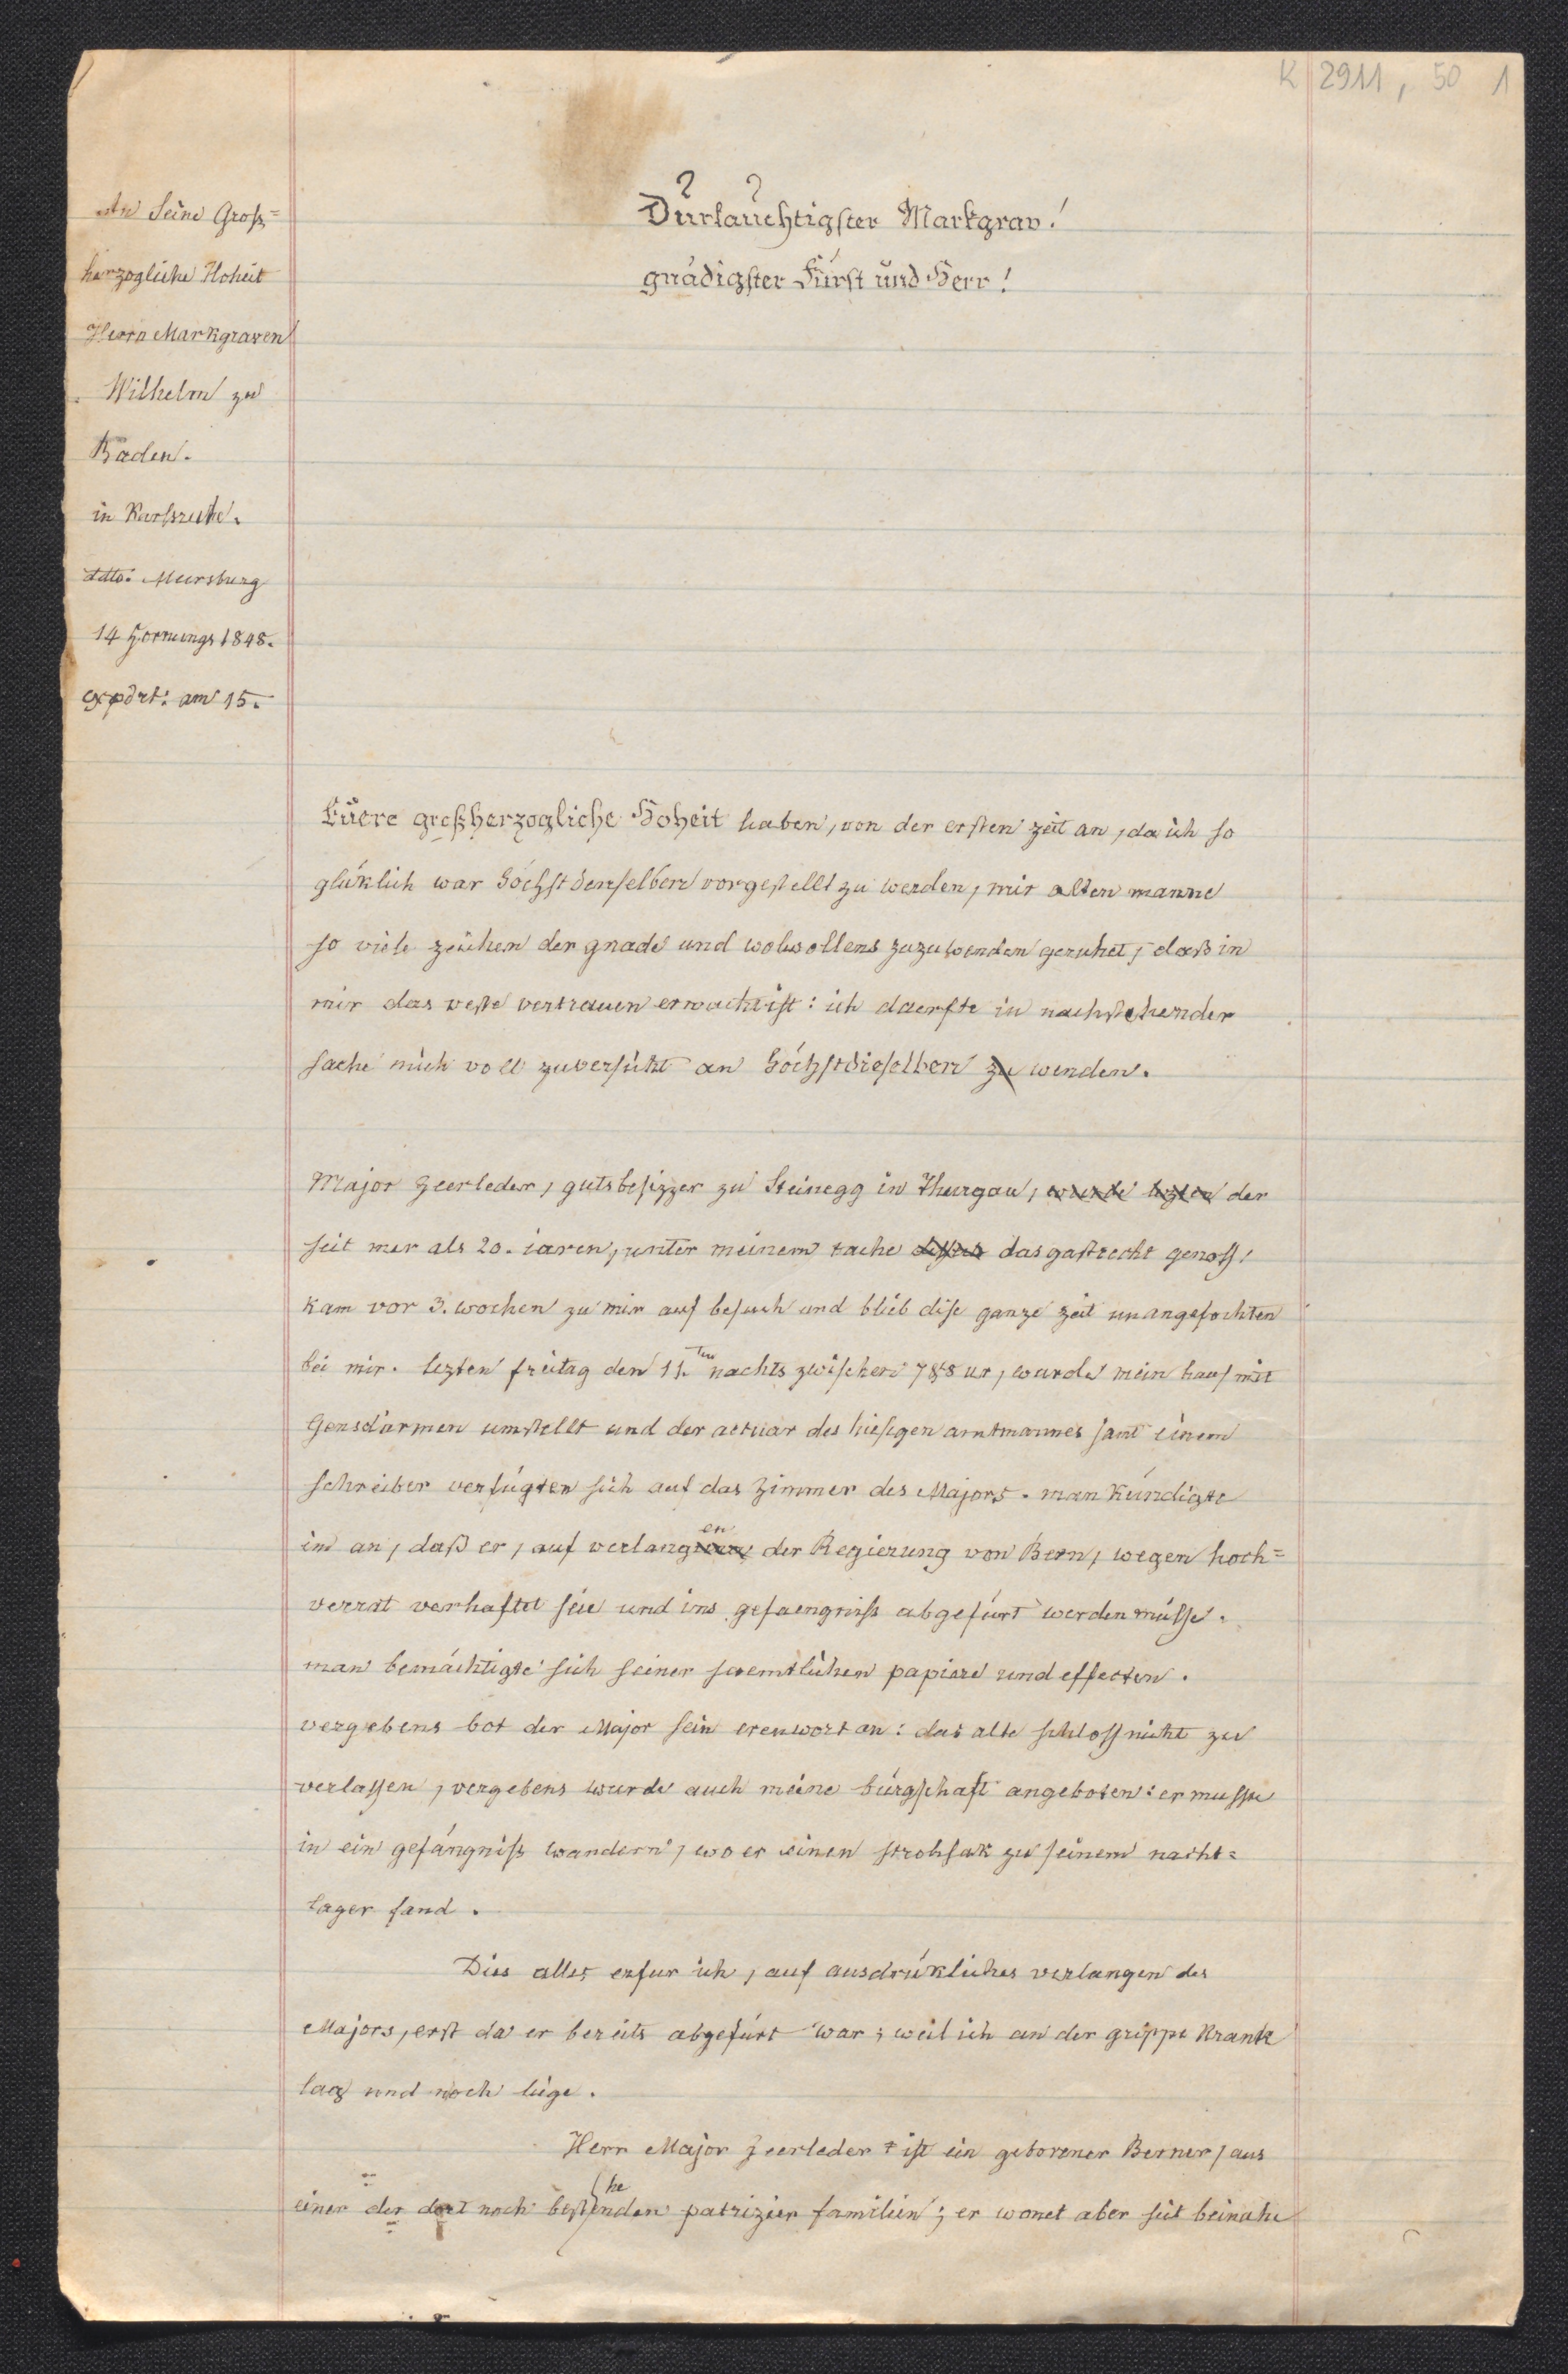 K 2911, 50 1
An Seine Groß=
herzogliche Hoheit
Herrn Markgraven
Wilhelm zu
Baden.
in Karlsruhe.
ddto: Meersburg
14 Hornungs 1848.
expdrt: am 15.
Durlauchtigster Markgrav!
gnädigster Fürst und Herr!
Euere großherzogliche Hoheit haben, von der ersten zeit an, da ich so
glüklich war Höchstdenselben vorgestellt zu werden, mir alten manne
so viele zeichen der gnade und wolwollens zuzuwenden geruhet, daß in
mir das veste vertrauen erwacht ist: ich daerfte in nachstehender
sache mich voll zuversicht an Höchstdieselben zu wenden.
Major Zeerleder, gutsbesizzer zu Steinegg in Thurgau, wurde lezten der
seit mer als 20. iaren, unter meinem tache das gastrecht genoß,
kam vor 3. wochen zu mir auf besuch und blieb dise ganze zeit unangefochten
bei mir. lezten freitag den 11.ten nachts zwischen 7&8 ur, wurde mein haus mit
Gensd'armen umstellt und der actuar des hiesigen amtmannes samt einem
schreiber verfügten sich auf das Zimmer des Majors. man kündigte
im an, daß er, auf verlangen der Regierung von Bern, wegen hoch=
verrat verhaftet seie und ins gefaengniß abgefürt werden müsse.
man bemächtigte sich seiner saemtlichen papiere und effecten.
vergebens bot der Major sein erenwort an: das alte schloß nicht zu
verlassen, vergebens wurde auch meine bürgschaft angeboten: er musste
in ein gefängniß wandern, wo er einen strohsak zu seinem nacht=
lager fand.
Dies alles erfur ich, auf ausdrükliches verlangen des
Majors, erst da er bereits abgefürt war; weil ich an der grippe krank
lag und noch lige.
Herr Major Zeerleder ist ein geborener Berner, aus
einer der dort noch bestehenden patrizier familien; er wonet aber seit beinahe